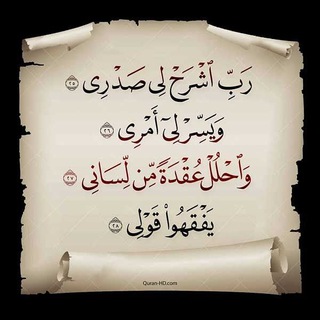 رَبِّ ٱشْرَحْ لِى صَدْرِى ٢٥
وَيَسِّرْ لِىٓ أَمْرِى ٢٦
وَٱحْلُلْ عُقْدَةً مِّن لِّسَانِى ٢٧
يَفْقَهُوا۟ قَوْلِى ٢٨
Quran-HD.com